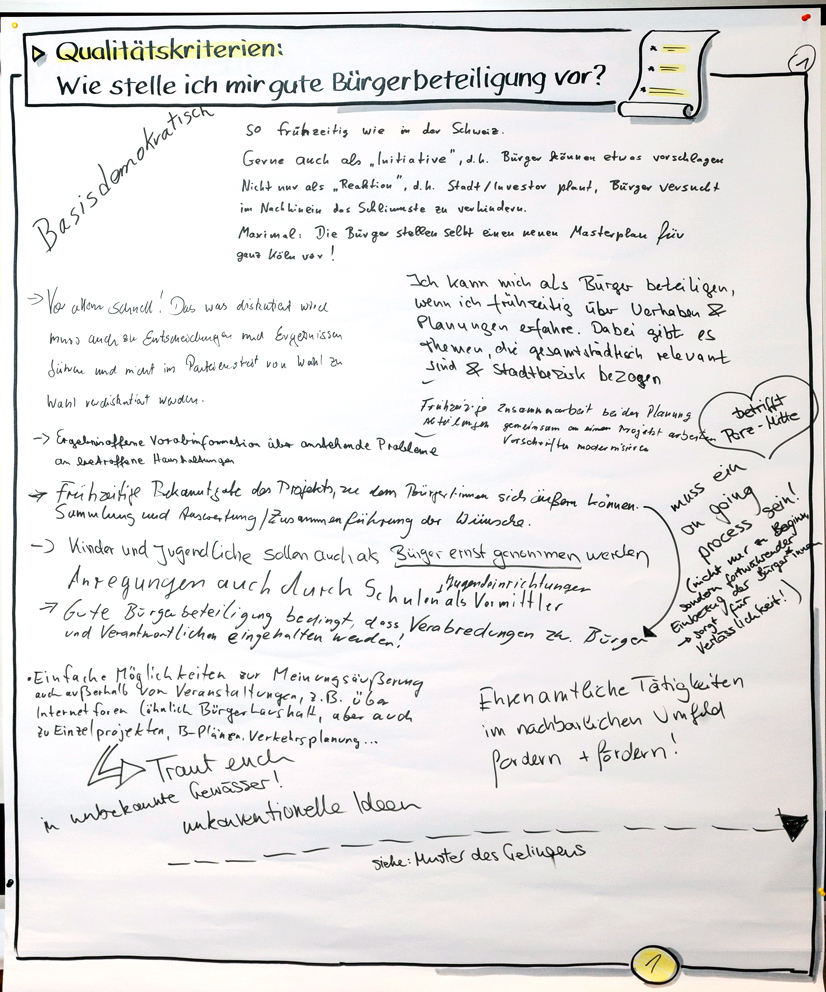 Qualitätskriterien:
Wie stelle ich mir gute Bürgerbeteiligung vor?
1
Basisdemokratisch
So frühzeitig wie in der Schweiz.
Gerne auch als „Initiative", d.h. Bürger können etwas vorschlagen
Nicht nur als „Reaktion", d.h. Stadt/Investor plant, Bürger versucht
im Nachhinein das Schlimmste zu verhindern.
Maximal: Die Bürger stellen selbt einen neuen Masterplan für
ganz Köln vor!
→ Vor allem schnell! Das was diskutiert wird
muss auch zu Entscheidungen und Ergebnissen
führen und nicht im Parteienstreit von Wahl zu
Wahl verdiskutiert werden.
Ich kann mich als Bürger beteiligen,
wenn ich frühzeitig über Vorhaben &
Planungen erfahre. Dabei gibt es
Themen, die gesamtstädtisch relevant
sind & Stadtbezirk bezogen
Frühzeitige Zusammenarbeit bei der Planung
Abteilungen gemeinsam an einem Projekt arbeiten
Vorschriften modernisieren
betrifft
Porz-Mitte
→ Ergebnisoffene Vorabinformation über anstehende Probleme
an betroffene Haushaltungen
→ Frühzeitige Bekanntgabe des Projekts, zu dem Bürger:innen sich äußern können.
Sammlung und Auswertung/Zusammenführung der Wünsche.
muss ein
on going
process sein!
(nicht nur zu Beginn
sondern fortwährender
Einbezug der Bürger*innen
→ sorgt für
Verlässlichkeit!)
→ Kinder und Jugendliche sollen auch als Bürger ernst genommen werden
Anregungen auch durch Schulen, Jugendeinrichtungen
als Vermittler
→ Gute Bürgerbeteiligung bedingt, dass Verabredungen zw. Bürger
und Verantwortlichen eingehalten werden!
• Einfache Möglichkeiten zur Meinungsäußerung
auch außerhalb von Veranstaltungen, z.B. über
Internetforen (ähnlich Bürgerhaushalt, aber auch
zu Einzelprojekten, B-Plänen, Verkehrsplanung...
Ehrenamtliche Tätigkeiten
im nachbarlichen Umfeld
fordern + fördern!
Traut euch
in unbekannte Gewässer!
unkonventionelle Ideen
siehe: Muster des Gelingens
1